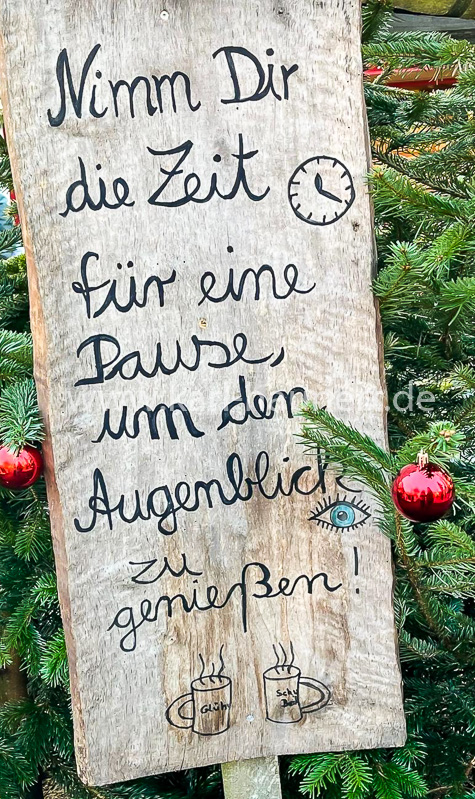 Nimm Dir
die Zeit
für eine
Pause,
um den
Augenblick
zu
genießen!